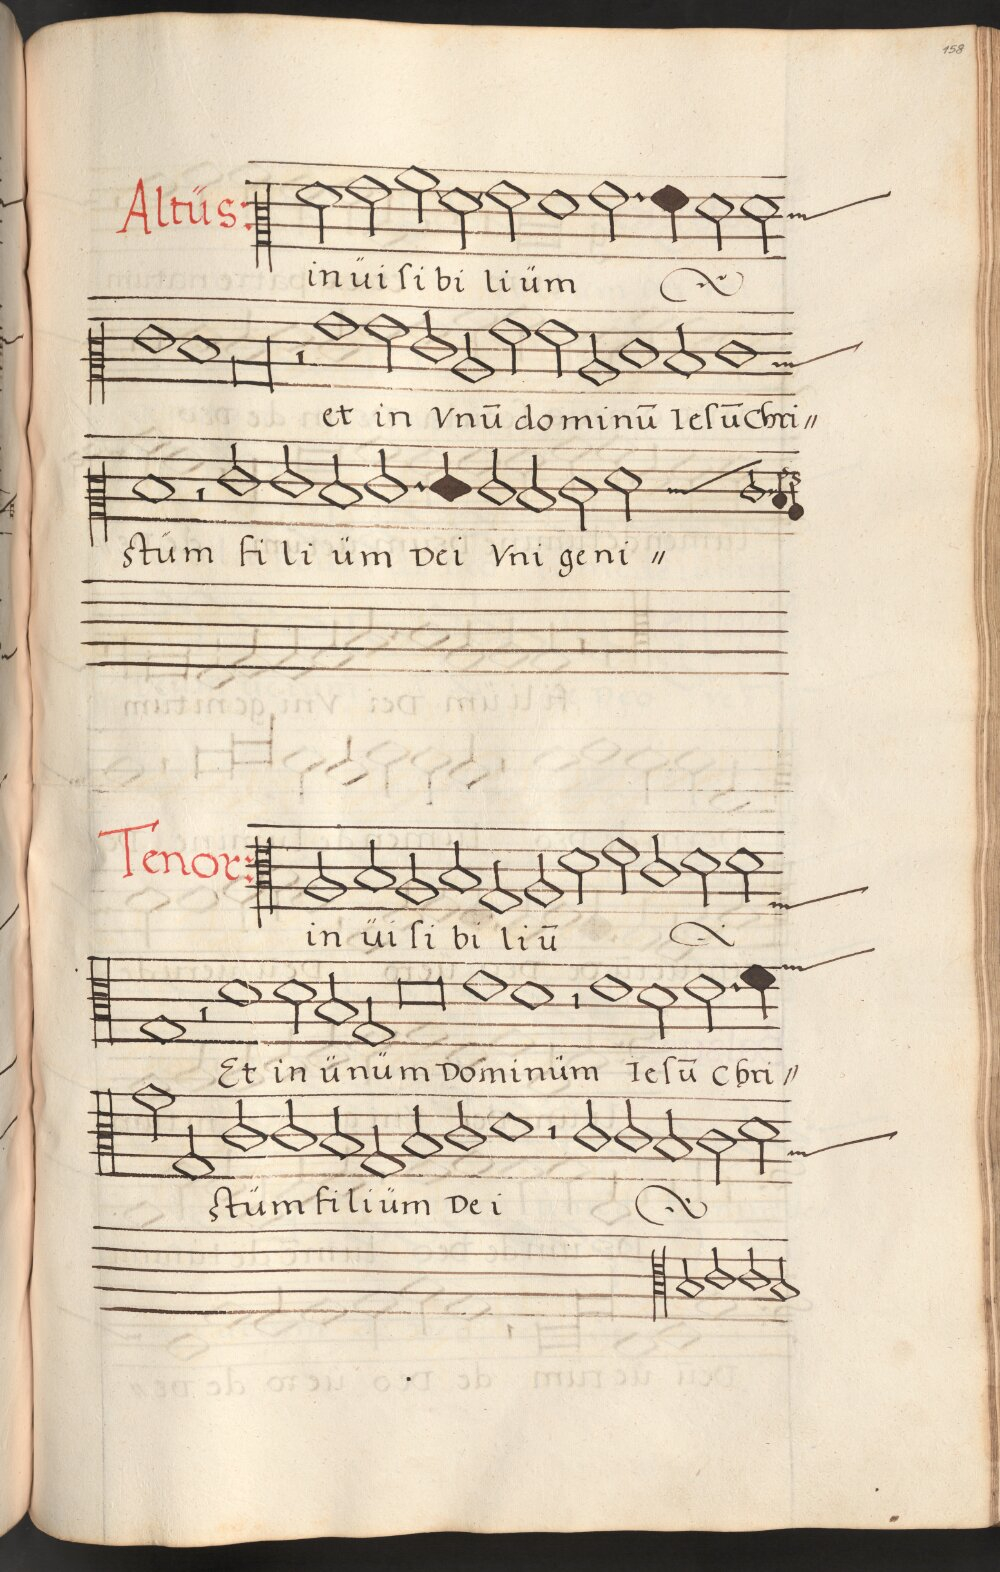 158
Altüs:
inüisibi liüm
et in Vnū dominū Iesūchri〃
stüm fi li üm Dei Vni geni 〃
Tenor:
in üisi bi liū
Et in ünüm Dominüm Iesū Chri〃
stüm filiüm Dei